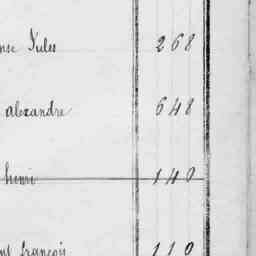 Jules 268
alexandre 648
henri 140
françois 110